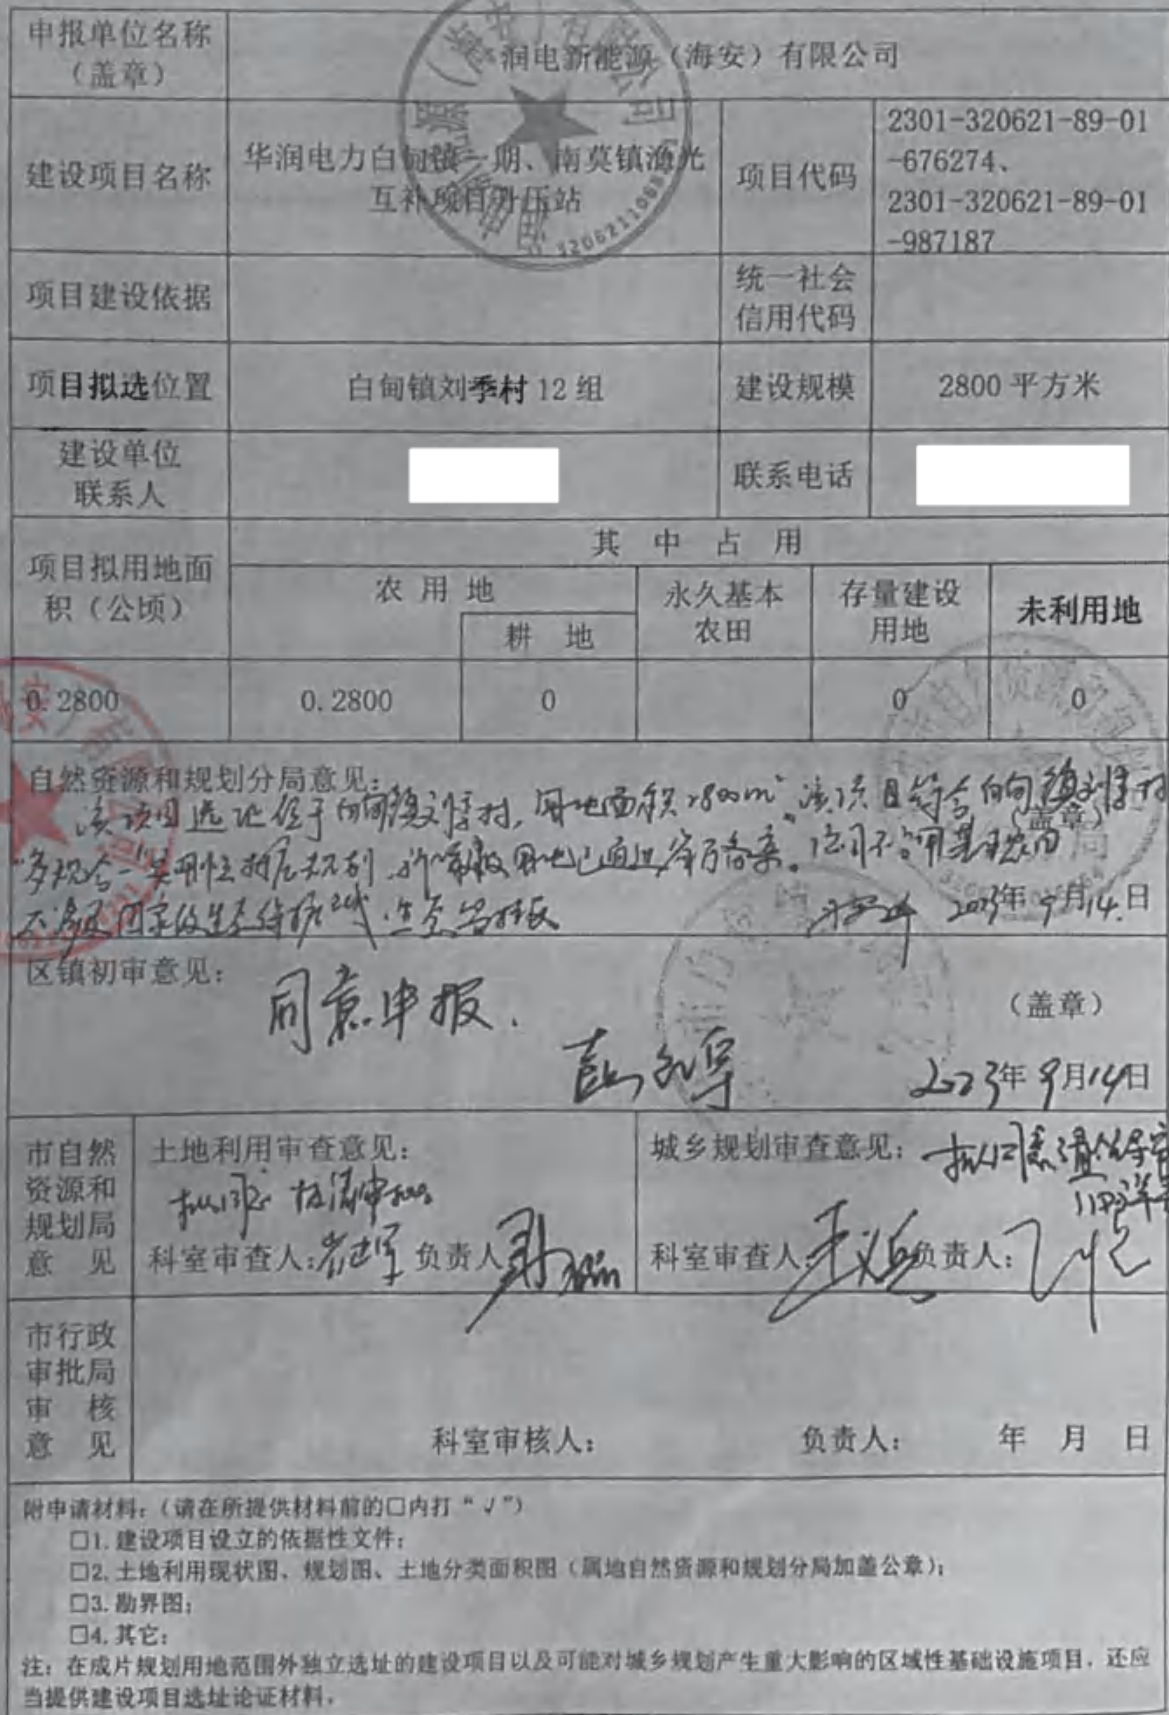 申报单位名称
(盖章)
润电新能源(海安)有限公司
建设项目名称
华润电力白甸镇一期、南莫镇渔光
互补项目升压站
项目代码
2301-320621-89-01
-676274、
2301-320621-89-01
-987187
项目建设依据
统一社会
信用代码
项目拟选位置
白甸镇刘季村 12 组
建设规模
2800 平方米
建设单位
联系人
联系电话
项目拟用地面
积(公顷)
其 中 占 用
农 用 地
耕 地
永久基本
农田
存量建设
用地
未利用地
0.2800
0.2800
0
0
0
自然资源和规划分局意见:
该项目选址位于白甸镇刘季村,用地面积2800m² 该项目符合白甸镇刘季村
(盖章)
2023年9月14日
区镇初审意见:
同意申报.
(盖章)
2023年9月14日
市自然
资源和
规划局
意 见
土地利用审查意见:
科室审查人: 负责人
城乡规划审查意见:
科室审查人 负责人:
市行政
审批局
审 核
意 见
科室审核人: 负责人: 年 月 日
附申请材料:(请在所提供材料前的□内打“√”)
□1.建设项目设立的依据性文件;
□2.土地利用现状图、规划图、土地分类面积图(属地自然资源和规划分局加盖公章);
□3.勘界图;
□4.其它:
注:在成片规划用地范围外独立选址的建设项目以及可能对城乡规划产生重大影响的区域性基础设施项目,还应
当提供建设项目选址论证材料.